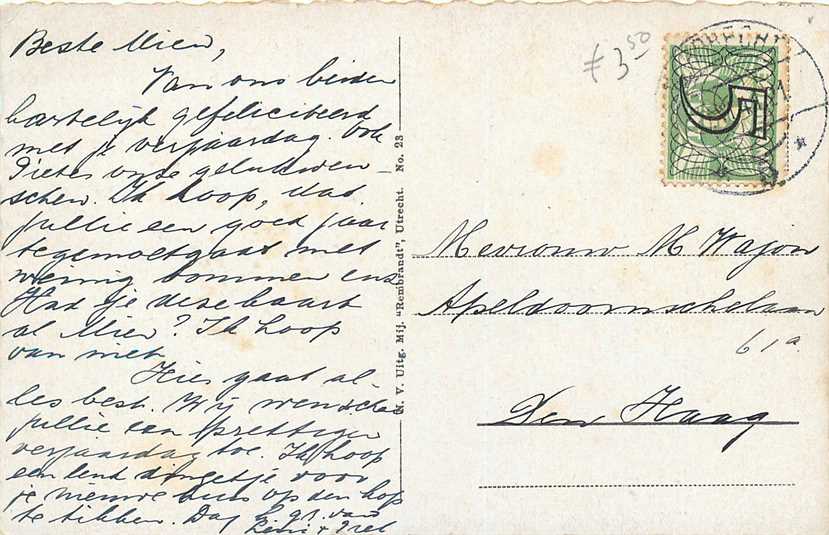 Beste Mien,
Van ons beiden
hartelijk gefeliciteerd
met je verjaardag. Ook
Pieter onze gelukwen-
schen. Ik hoop, dat
jullie een goed jaar
tegemoetgaat met
weinig bommen enz
Had je deze kaart
al Mien? Ik hoop
van niet.
Hier gaat al-
les best. Wij wenschen
jullie een prettige
verjaardag toe. Ik hoop
een leuk dingetje voor
je nieuwe huis op den kop
te tikken. Dag h. gr. van
N. V. Uitg. Mij. "Rembrandt", Utrecht. No. 23
f 3.50
5
Mevrouw M Wajon
Apeldoornschelaan
61a
Den Haag